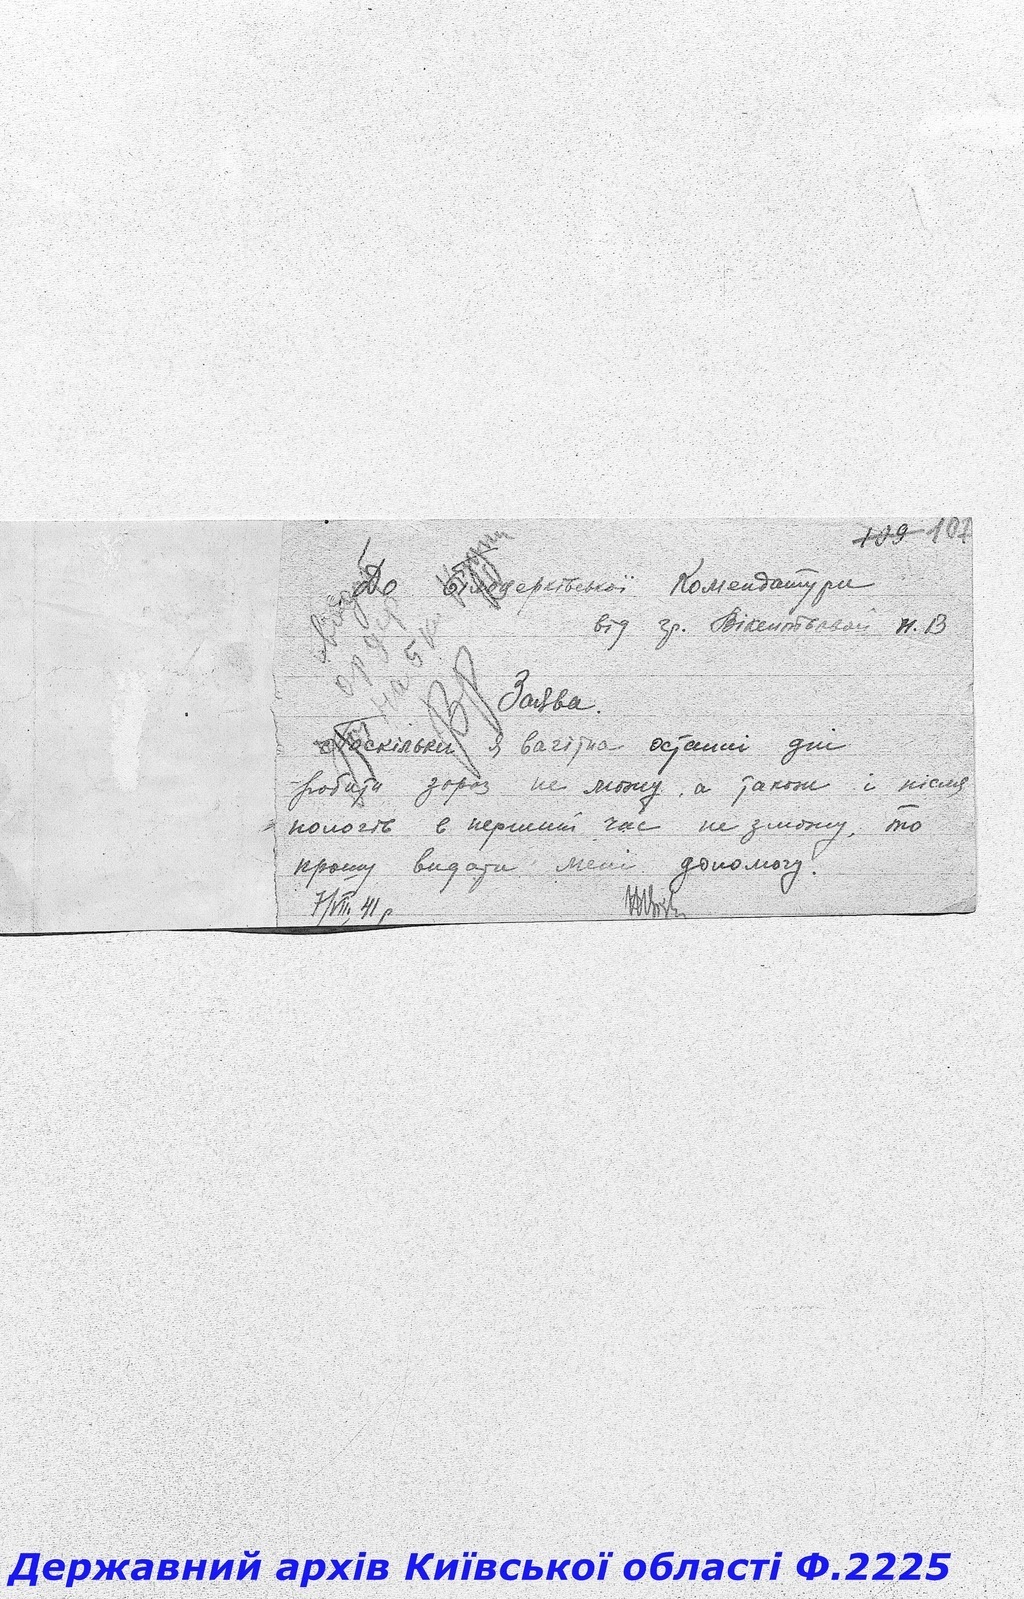 109 107
До Білоцерківської Комендатури
від гр. Н. В
Заява.
Оскільки я вагітна останні дні
робити зараз не можу, а також і після
пологів в перший час не зможу, то
прошу видати мені допомогу.
7/VIII 41 р
ордер
на 5 кг.
Державний архів Київської області Ф.2225